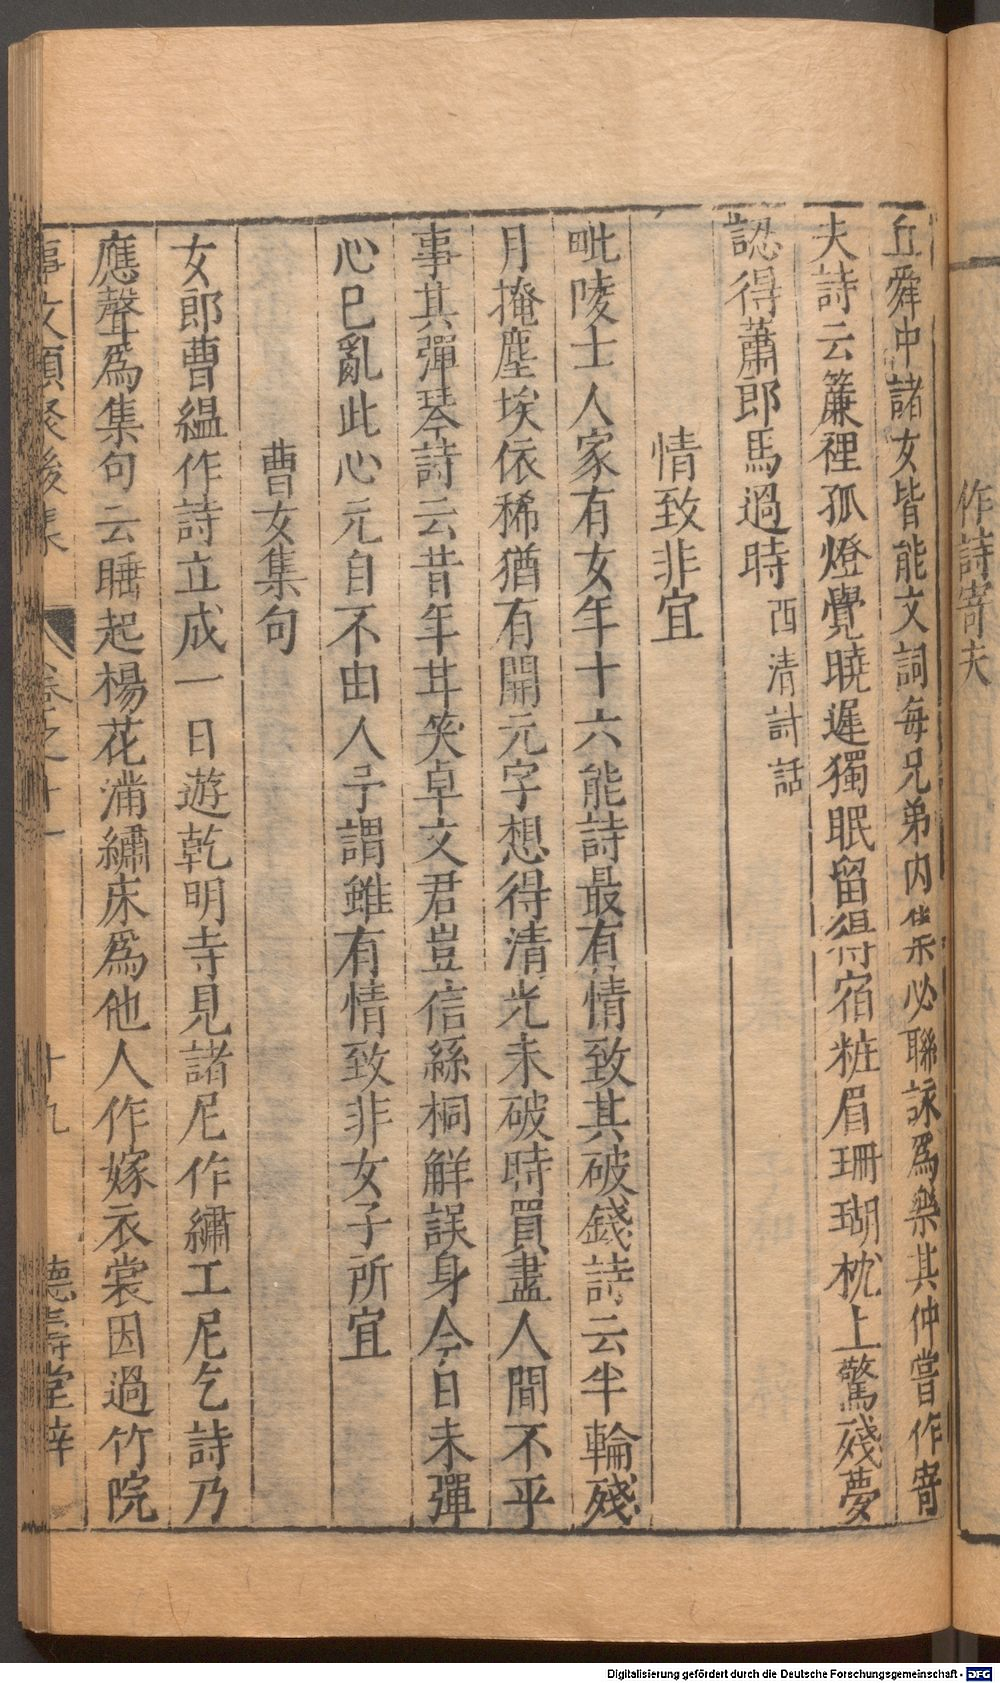 作詩寄夫
丘舜中諸女皆能文詞每兄弟内集必聯詠爲樂其仲嘗作寄
夫詩云簾裡孤燈覺曉遲獨眠留得宿粧眉珊瑚枕上驚殘夢
認得蕭郎馬過時西清詩話
情致非宜
毗陵士人家有女年十六能詩最有情致其破錢詩云半輪殘
月掩塵埃依稀猶有開元字想得清光未破時買盡人間不平
事其彈琴詩云昔年耳笑卓文君豈信絲桐解誤身今日未彈
心已亂此心元自不由人予謂雖有情致非女子所宜
曹女集句
女郎曹緼作詩立成一日遊乾明寺見諸尼作繡工尼乞詩乃
應聲爲集句云睡起楊花滿繡床爲他人作嫁衣裳因過竹院
事文類聚後集 卷之十一 十九 德壽堂梓
Digitalisierung gefördert durch die Deutsche Forschungsgemeinschaft - DFG